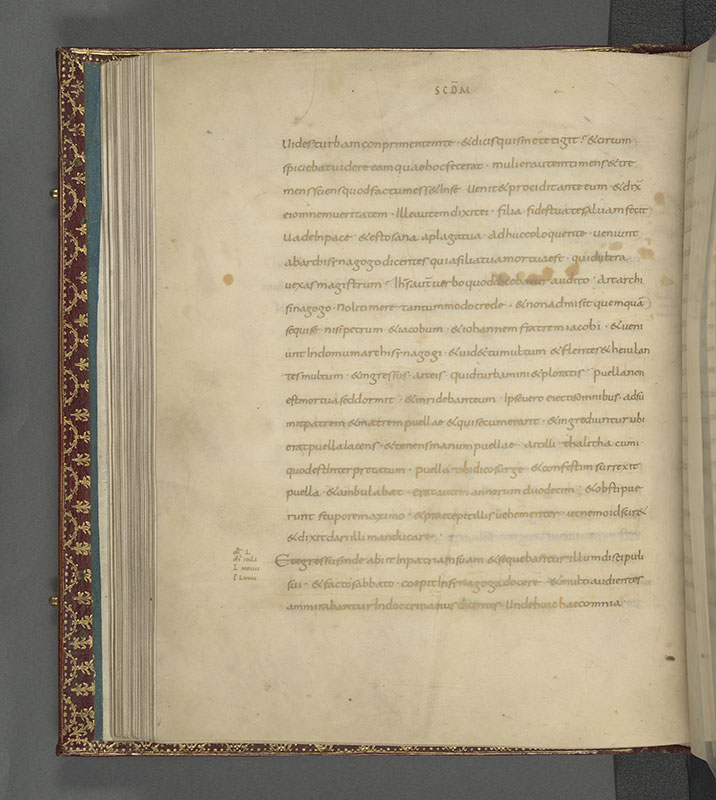 SCDM
Uides turbam conprimentem te · & dicis quis me tetigit · & circum
spiciebat uidere eam quae hoc fecerat · mulier autem timens & tre
mens sciens quod factum ess& in se uenit & procidit ante eum & dix
ei omnem ueritatem · Ille autem dixit ei · filia fides tua te saluam fecit
Uade in pace · & esto sana a plaga tua adhuc eo loquente · ueniunt
ab archisynagogo dicentes quia filia tua mortua est · quid ultra
uexas magistrum · Ihs aut uerbo quod audito · Ait archi
sinagogo · Noli timere tantummodo crede · & non admisit quemquā
sequi se nisi petrum & iacobum & iohannem fratrem iacobi · & ueni
unt In domum archisynagogi · & uid& tumultum & flentes & heiulan
tes multum · & ingressus ait eis quid turbamini & ploratis puella non
est mortua sed dormit & inridebant eum Ipse uero eiectis omnibus adsu
mit patrem & matrem puellae & qui secum erant · & ingrediuntur ubi
erat puella iacens · & tenens manum puellae · ait illi · thalitha cumi
quod est Interpretatum · puella tibi dico surge & confestim surrexit
puella · & ambulabat · erat autem annorum duodecim · & obstipue
runt stupore maximo · & praecepit illis uehementer ut nemo id scir&
& dixit dari illi manducare ·
Egressus inde abiit In patriam suam & sequebantur illum discipuli
sui · & facto sabbato coepit In synagoga docere & multi audientes
ammirabantur In doctrina eius dicentes · Unde huic haec omnia